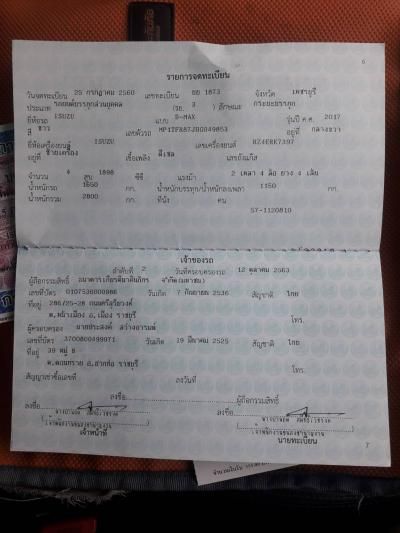 6
รายการจดทะเบียน
วันจดทะเบียน 25 กรกฎาคม 2560 เลขทะเบียน ยย 1873 จังหวัด เพชรบุรี
ประเภท รถยนต์บรรทุกส่วนบุคคล (รย. 3 ) ลักษณะ กระบะบรรทุก
ยี่ห้อรถ ISUZU แบบ D-MAX รุ่นปี ค.ศ. 2017
สี ขาว เลขตัวรถ อยู่ที่ กลางขวา
ยี่ห้อเครื่องยนต์ ISUZU เลขเครื่องยนต์ RZ4ERK7397
อยู่ที่ ซ้ายเครื่อง เชื้อเพลิง ดีเซล เลขถังแก๊ส
จำนวน 4 สูบ 1898 ซีซี แรงม้า 2 เพลา 4 ล้อ ยาง 4 เส้น
น้ำหนักรถ 1650 กก. น้ำหนักบรรทุก/น้ำหนักลงเพลา 1150 กก.
น้ำหนักรวม 2800 กก. ที่นั่ง คน
57-1120810
เจ้าของรถ
ลำดับที่ 2 วันที่ครอบครองรถ 12 ตุลาคม 2563
ผู้ถือกรรมสิทธิ์ ธนาคารเกียรตินาคินภัทร จำกัด(มหาชน)
เลขที่บัตร 0107536000986 วันเกิด 7 กันยายน 2536 สัญชาติ ไทย
ที่อยู่ 286/25-28 ถนนศรีสุริยวงศ์
ต.หน้าเมือง อ.เมือง ราชบุรี โทร.
ผู้ครอบครอง นายประสงค์ สว่างอารมณ์
เลขที่บัตร 3700800499971 วันเกิด 19 มีนาคม 2525 สัญชาติ ไทย
ที่อยู่ 39 หมู่ 8
ต.ดอนทราย อ.ปากท่อ ราชบุรี โทร.
สัญญาเช่าซื้อเลขที่ ลงวันที่
ลงชื่อ ผู้ถือกรรมสิทธิ์
ลงชื่อ ลงชื่อ
เจ้าหน้าที่ นายทะเบียน
7